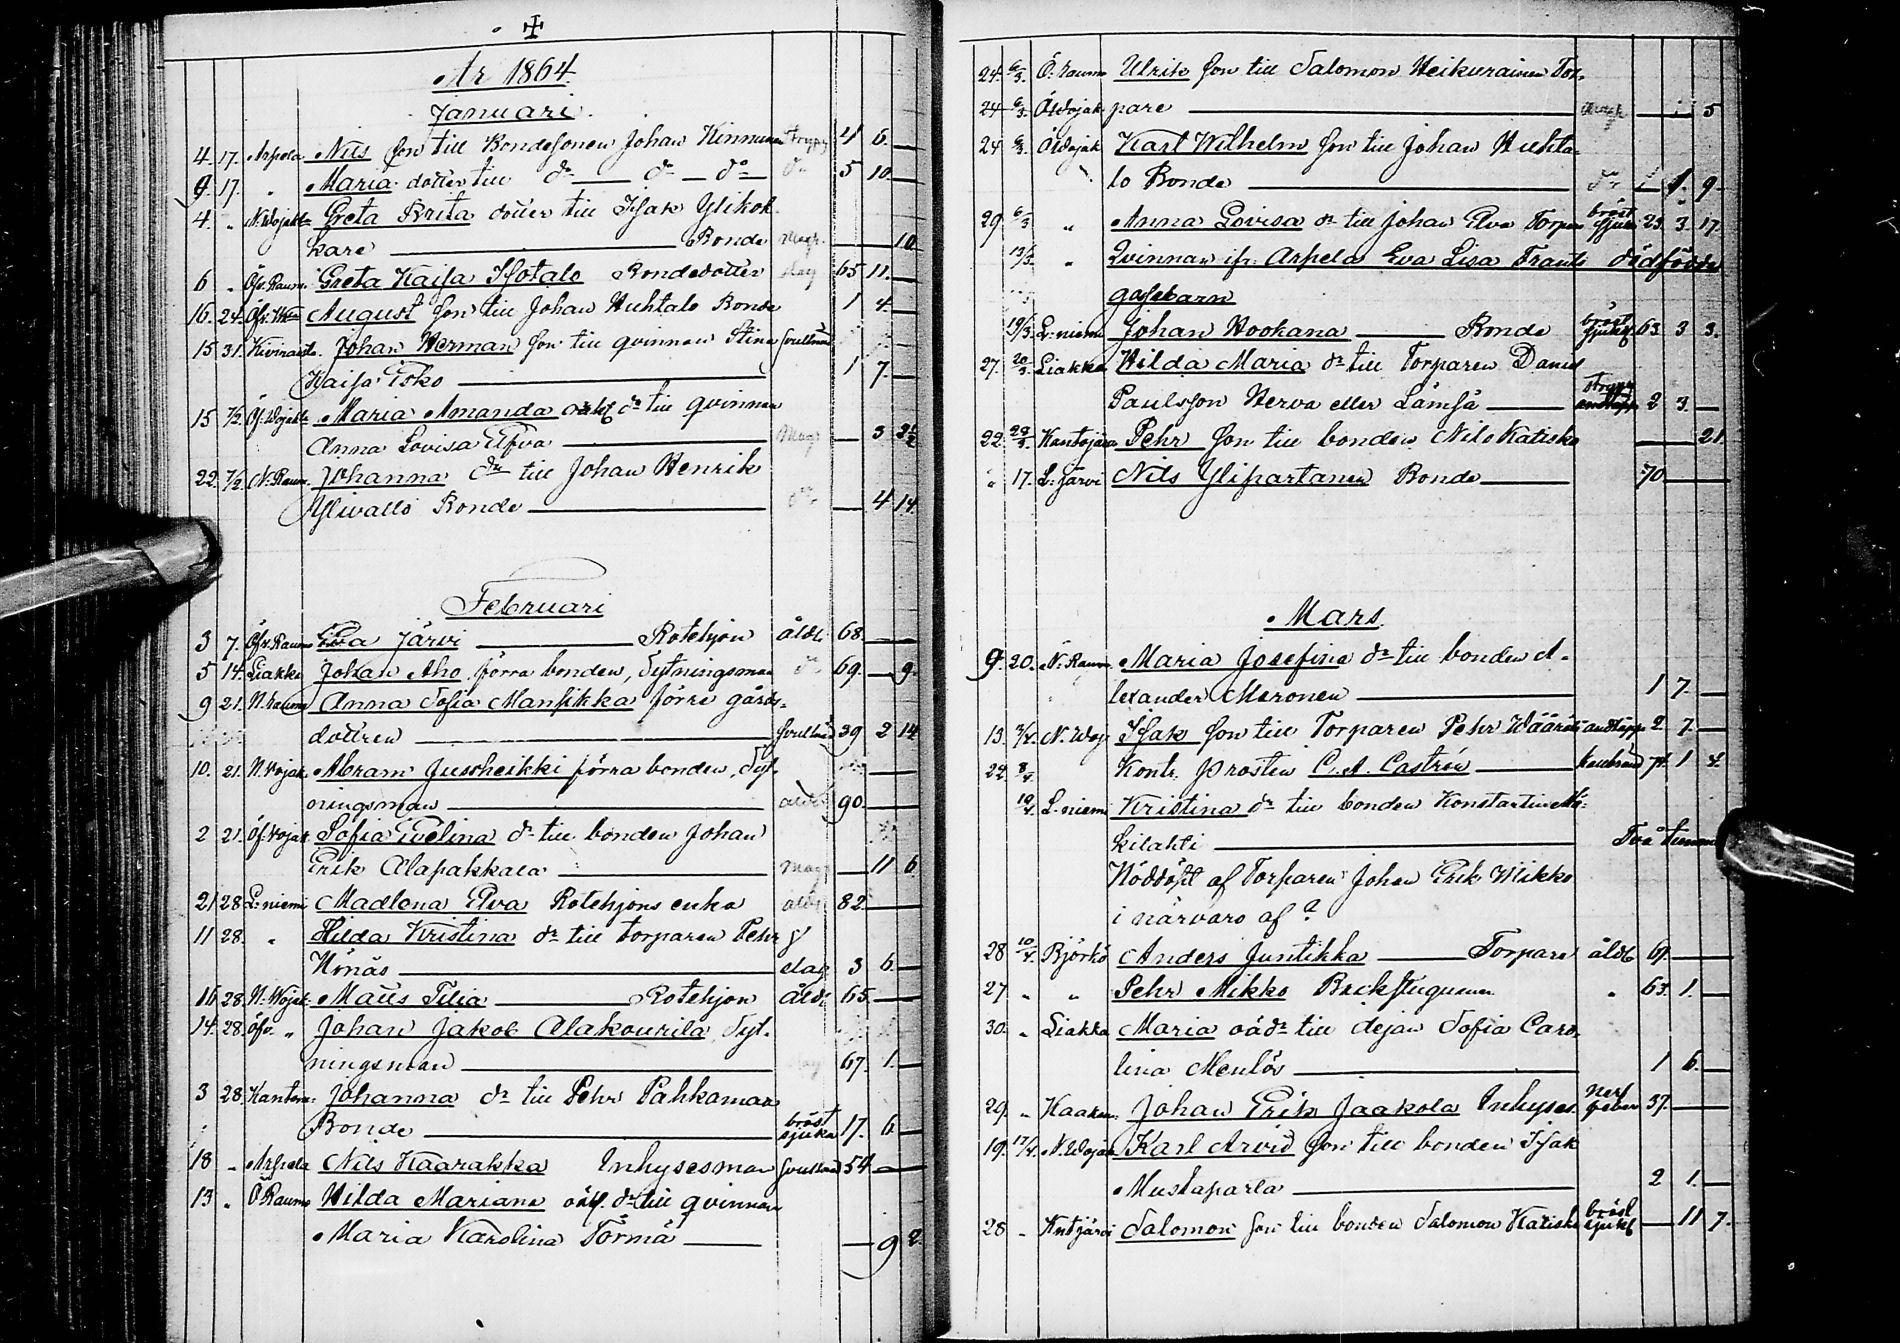 Ar 1864.
Januari.
4. 17. Arpela Nils son till Bondesonen Johan Kinnunen strypsj 4 6. —
9 17. „ Maria dotter till d:o — d:o — d:o d:o 5 10. —
4. „ N. Wojakk. Greta Brita dotter till Isak Ylikok-
kare — Bonde Magr. — — 10.
6 „ Öfv. Raum. Greta Kajsa Isotalo Bondedotter slag 65 11. —
16. 24. Öfv. August son till Johan Huhtalo Bonde 1 4. —
15 31. Kiviranta. Johan Herman son till qvinnan Stina svullnad
Kaisa Esko — 1 7. —
15 7/2. Öf. Wojakk. Maria Amanda oäkt d:r till qvinnan
Anna Lovisa Elfva — Mag — 3
22. 7/2. N. Raum. Johanna d:r till Johan Henrik
Ylivallo Bonde — d:o — 4 14.
Februari
3 7. Öfv. Raumo Eva Järvi — Rotehjon åld. 68 — —
5 14. Liakka Johan Aho förra bonden, Sytningsman d:o 69. — 9.
9 21. N. Raumo Anna Sofia Mansikka förre gårds-
dottren — svullnad 39 2 14
10. 21. N. Vojak. Abram Jussheikki förra bonden, Syt-
ningsman — åld. 90. — —
2 21. Öf. Vojak. Sofia Evelina d:r till bonden Johan
Erik Alapakkala — Mag — 11 6
21 28 L:niemi Madlena Elva Rotehjons enka åld. 82. — —
11 28. „ Hilda Kristina d:r till torparen Pehr
Hönäs — slag 3 6. —
16 28. N. Wojak. Matts Tilia — Rotehjon åld. 65 — —
14. 28. Öfv. „ Johan Jakob Alakourila Syt-
ningsman — slag 67. 1. —
3 28. Kantom. Johanna d:r till Pehr Pahkamaa
Bonde — bröst sjuka 17. 6 —
18 „ Arpela Nils Kaarakka Inhysesman svullnad 54 — —
13. „ Ö. Raumo Hilda Mariana oäkt. d:r till qvinnan
Maria Karolina Törmä — — 9 2.
24. 6/3. Ö. Raumo Ulrik son till Salomon Heikurainen Tor-
24 6/3. Ö. Wojak. pare — Magr — 5
24 6/3. Ö. Wojak. Karl Wilhelm son till Johan Huhta-
lo Bonde — d:o — 1. 9.
29 6/3 „ Anna Lovisa d:r till Johan Elva Torpare bröst sjuka 23. 3 17.
13/3. „ Qvinnan ifr. Arpela Eva Lisa Frants dödfödda
gossebarn
19/3. L:niemi Johan Hookana — Bonde bröst sjukd. 63. 3 3.
27. 20/3. Liakka Hilda Maria d:r till Torparen Daniel
Paulsson Nerva eller Lämsä — stryp andtäpp 2 3. —
22. 28/3. Kantojärvi Pehr son till bonden Nils Katisko — — 21.
„ 17. L:Järvi Nils Ylipartanen Bonde — 70 — —
Mars.
9. 20. N. Raum. Maria Josefina d:r till bonden A-
lexander Moronen — 1 7. —
13. 3/4. N. Woj Isak son till Torparen Pehr Wäärä andtäpp 2 7. —
24 8/4. Kontr. Prosten C. A. Castrén — kallbrand 74. 1 4.
10/4. L:niemi Kristina d:r till bonden Konstantin
kilahti — Två timmar
Nöddöpt af Torparen Johan Erik Mikko
i närvaro af ?
28 10/4. Björkö Anders Juntikka — Torpare åld. 64. — —
27 „ „ Pehr Mikko Backstugum. „ 63. 1. —
30. „ Liakka Maria oäd:r till dejan Sofia Caro-
lina Menlös — 1 6. —
29. „ Kaakam. Johan Erik Jaakola Inhyses nerf feber 37. — —
19. 17/4. N. Wojak Karl Arvid son till bonden Isak
Mustaparta — 2 1. —
28 „ Kntjärvi Salomon son till bonden Salomon Katisko bröst sjukd. — 11 7.